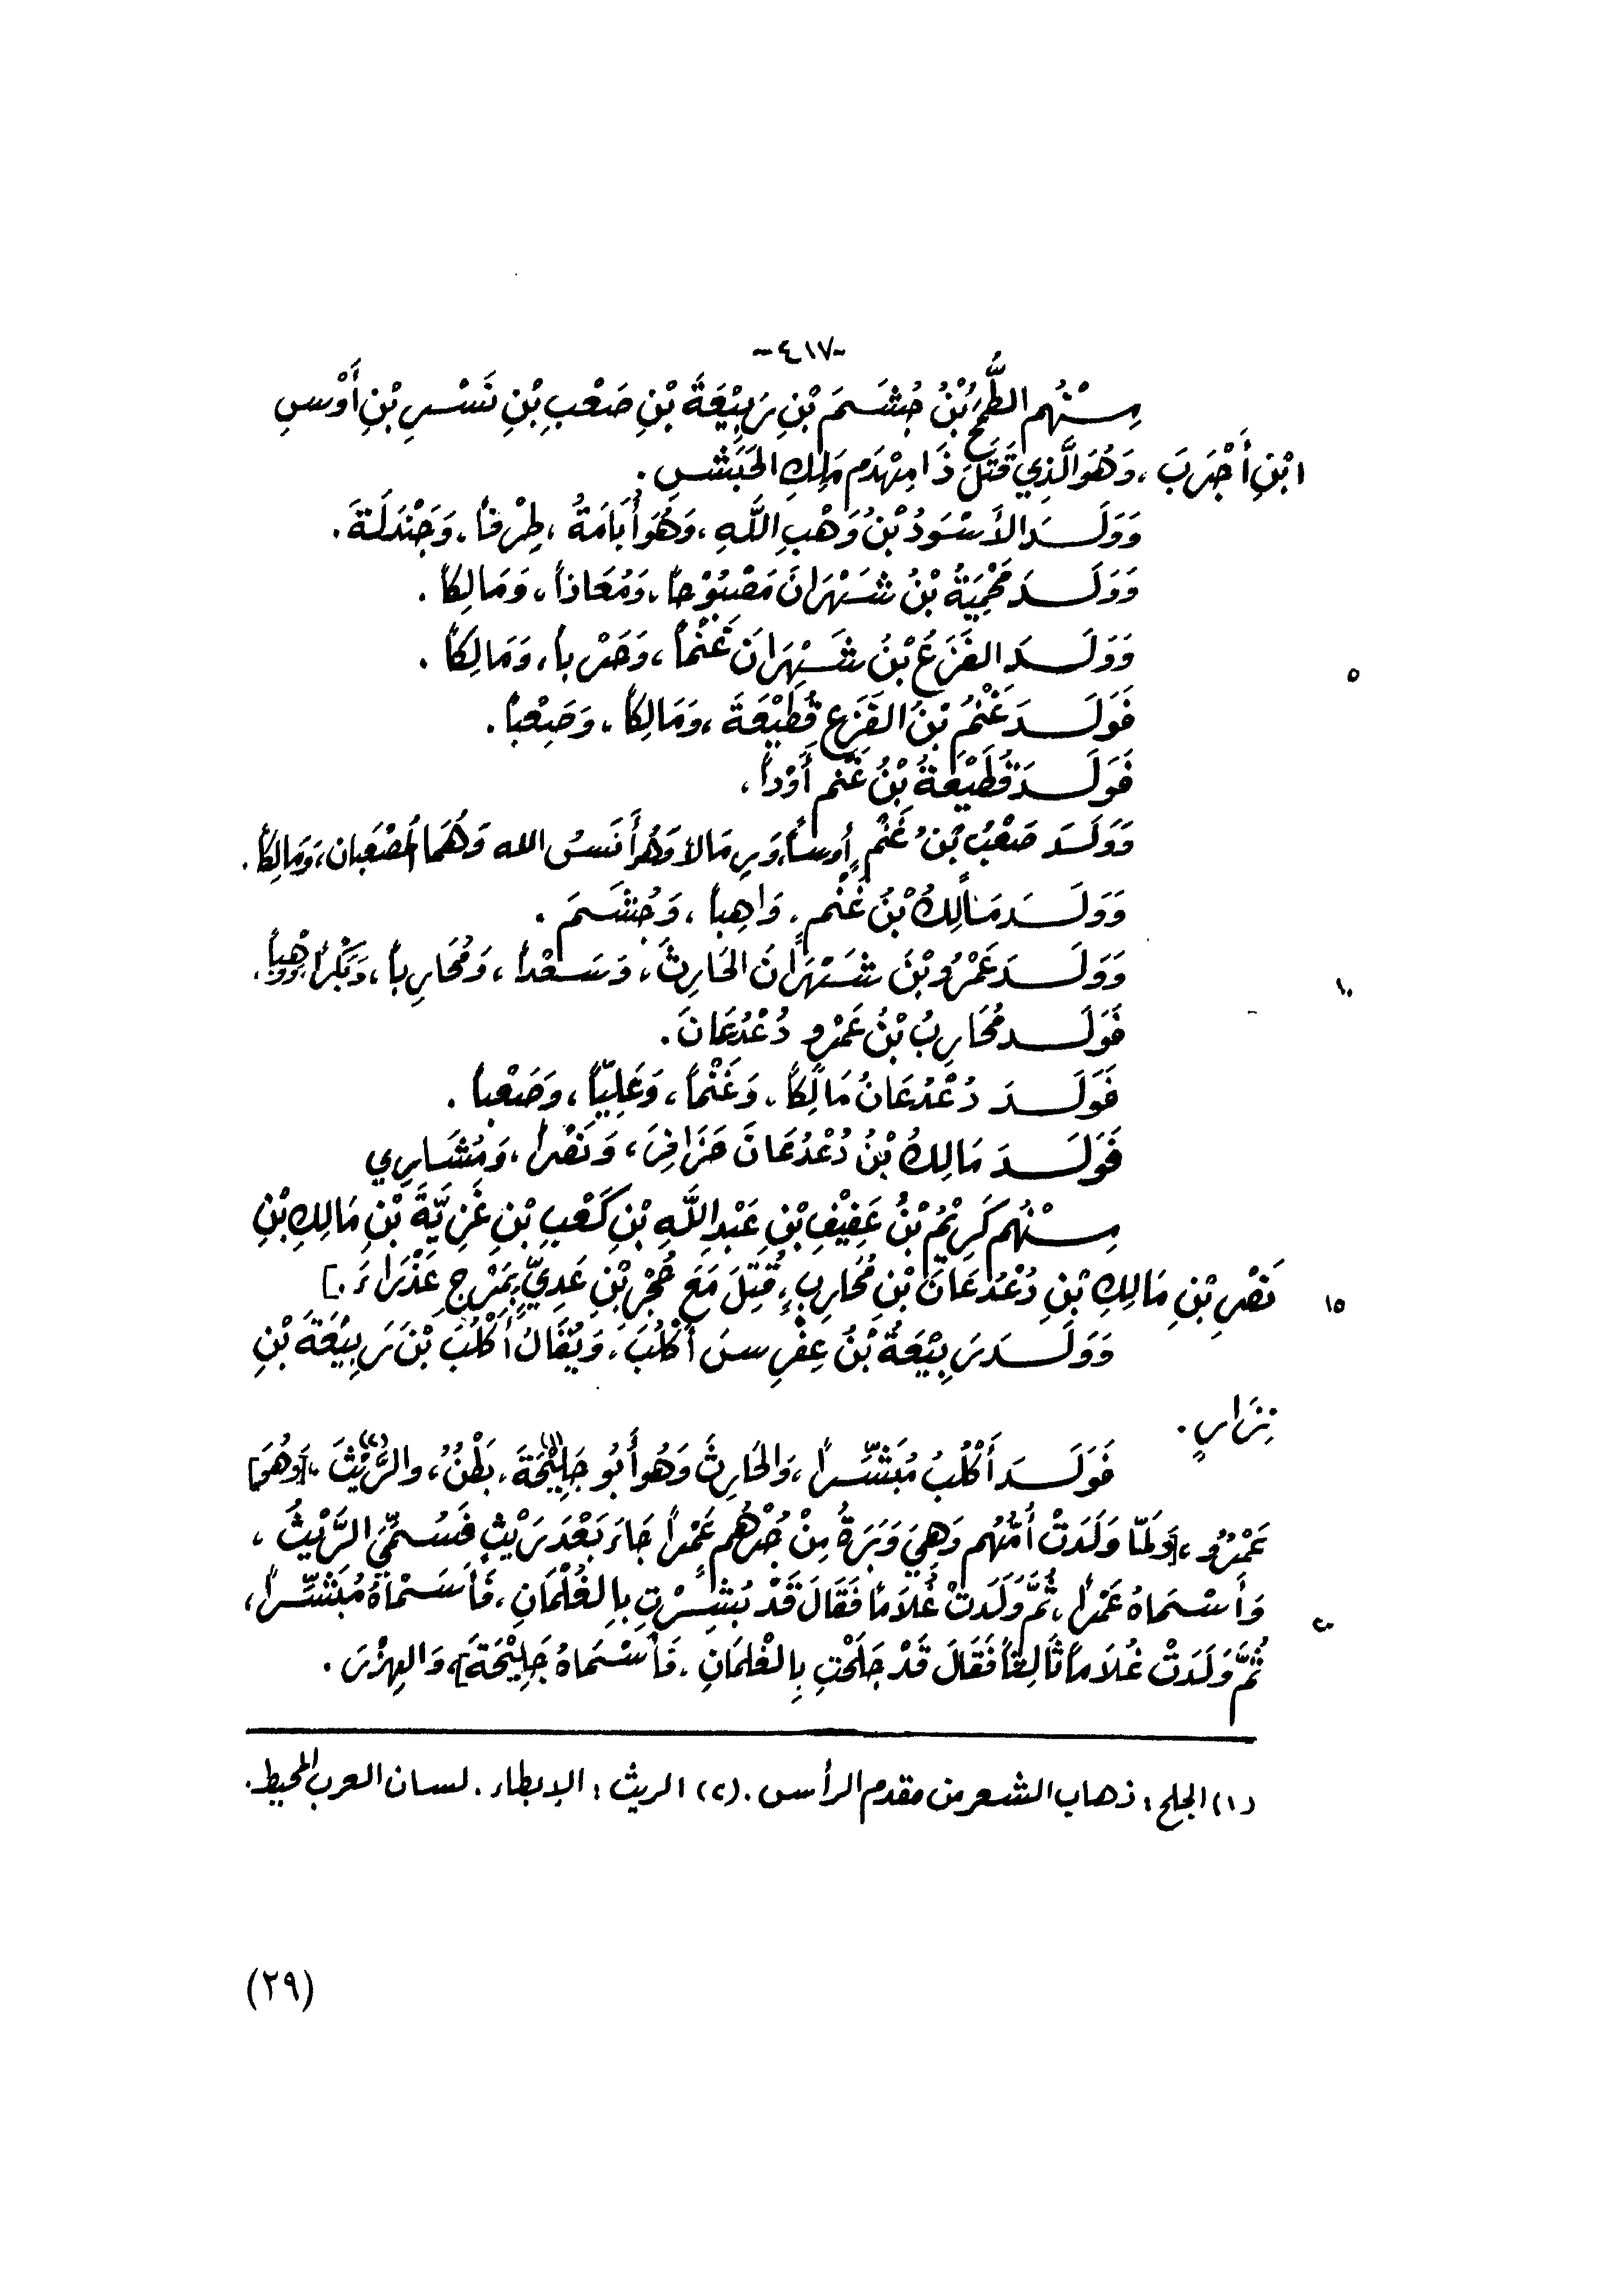 -٤١٧-
مِنْهُم الطُّمْحُ بْنُ جُشَمَ بْنِ رَبِيْعَةَ بْنِ صَعْبِ بْنِ نَسْرِ بْنِ أَوْسِ
ابْنِ أَجْرَبَ ، وَهُوَ الَّذِي قَتَلَ ذَا مِهْدَم مَلِكِ الحَبَشِ .
وَوَلَدَ الأَسْوَدُ بْنُ وَهْبِ اللَّهِ ، وَهُوَ أُبَامَةُ ، طِرْفاً ، وَجَنْدَلَةَ .
وَوَلَدَ مَحْمِيَةُ بْنُ شَهْرَانَ مَصْبُوْحاً ، وَمُعَاذاً ، وَمَالِكاً .
وَوَلَدَ الفَزَعُ بْنُ شَهْرَانَ غَنْماً ، وَحَرْباً ، وَمَالِكاً . ٥
فَوَلَدَ غَنْمُ بْنُ الفَزَعِ قُطَيْعَةَ ، وَمَالِكاً ، وَصَعْباً .
فَوَلَدَ قُطَيْعَةُ بْنُ غَنْمٍ أَوْداً ،
وَوَلَدَ صَعْبُ بْنُ غَنْمٍ أوساً، وَهُمَا المصْعَبان، وَمَالِكاً .
وَوَلَدَ مَالِكُ بْنُ غَنْمٍ ، وَاهِباً ، وَجُشَمَ .
وَوَلَدَ عَمْرُو بْنَ شَهْرَانَ الحَارِثَ ، وَسَعْداً ، وَمُحَارِباً ، وَبَكْراً، وَوَهْباً . ١٠
فَوَلَدَ مُحَارِبُ بْنُ عَمْرٍو دُعْدُعَانَ .
فَوَلَدَ دُعْدُعَانُ مَالِكاً ، وَغَنْماً ، وَعَلِيّاً ، وَصَعْباً .
فَوَلَدَ مَالِكُ بْنُ دُعْدُعَانَ حَزَافِرَ ، وَنَصْراً ، وَمُشَارِي
مِنْهُم كَرِيْمُ بْنُ عَفِيْفِ بْنِ عَبْدِ اللَّهِ بْنِ كَعْبِ بْنِ غَزِيَّةَ بْنِ مَالِكِ بْنِ
نَصْرِ بْنِ مَالِكِ بْنِ دُعْدُعَانَ بْنِ مُحَارِبٍ ، قُتِلَ مَعَ حُجْرِ بْنِ عَدِيٍّ بِمَرْجِ عَذْرَاءَ .] ١٥
وَوَلَدَ رَبِيْعَةُ بْنُ عِفْرِسَ أَكْلُبَ ، وَيُقَالُ أَكْلُبَ بْنَ رَبِيْعَةَ بْنِ
نِزَارٍ .
فَوَلَدَ أَكْلُبُ مُبَشِّراً ، وَالحَارِثَ وَهُوَ أَبُو جَلِيْحَةَ(١) ، بَطْنٌ ، والرَّيْثَ(٢) ، [وَهُوَ]
عَمْرُو ، [وَلَمّا وَلَدَتْ أُمُّهُم وَهِيَ وَبَرَةُ مِنْ جُرْهُم عَمْراً جَاءَ بَعْدَ رَيْثٍ فَسُمِّيَ الرَّيْثُ ،
وَأَسْمَاهُ عَمْراً ، ثُمَّ وَلَدَتْ غُلَامًا فَقَالَ قَدْ بُشِّرْتِ بِالغُلْمَانِ ، فَأَسْمَاهُ مُبَشِّراً ، ٢٠
ثُمَّ وَلَدَتْ غُلَامًا ثَالِثاً فَقَالَ قَدْ جَلَحْتِ بِالغُلْمَانِ ، فَأَسْمَاهُ جَلِيْحَةَ] ، وَالهِزْرَ .
(١) الجلح : ذهاب الشعر من مقدم الرأس . (٢) الريث : الإبطاء . لسان العرب المحيط .
(٢٩)